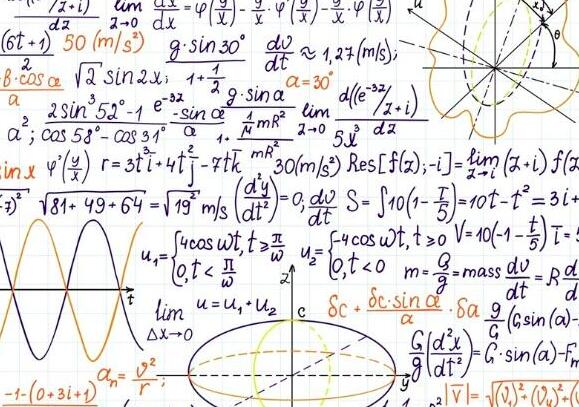 /z+i) lim dx/dx = φ(y/x) - y/x · φ'(y/x) - y/x · φ(y/x)
dz z→0
(6t+1)/2 50 (m/s²) g·sin30° / 1+1/2 dv/dt ≈ 1,27(m/s);
·cos α / a √2 sin2x; a=30°
a²; 2sin³52°-1 / cos58°-cos31° e⁻³² -sin α / α g·sin a / 1+ 1/μ mR² / mR² lim z→0 d((e⁻³²/z+i) / dz
5x³
sin x φ'(y/x) r=3t³i+4t²j-7tk 30(m/s²) Res[f(z);-i]=lim z→i (z+i) f(z
7)² √81+49+64 = √19² m/s (d²y/dt²)=0; dv/dt S=∫10(1-t/5)=10t-t²=3i+
u₁={4cos ωt, t≥π/ω
0, t<π/ω
u₂={-4cos ωt, t≥0
0, t<0
V=10(-1-t/5) t=
m=G/g=mass dv/dt=R d
t
lim Δx→0 u=u₁+u₂
z
c
δc+ δc·sin α / a ·δa g/G (Gsin(a)-
G/g (d²x/dt²)=G·sin(a)-Fm
aₙ=v²/r;
y
-1-(0+3i+1)
|v|=√(V₁)²+(V₄)²+(
x
u
θ